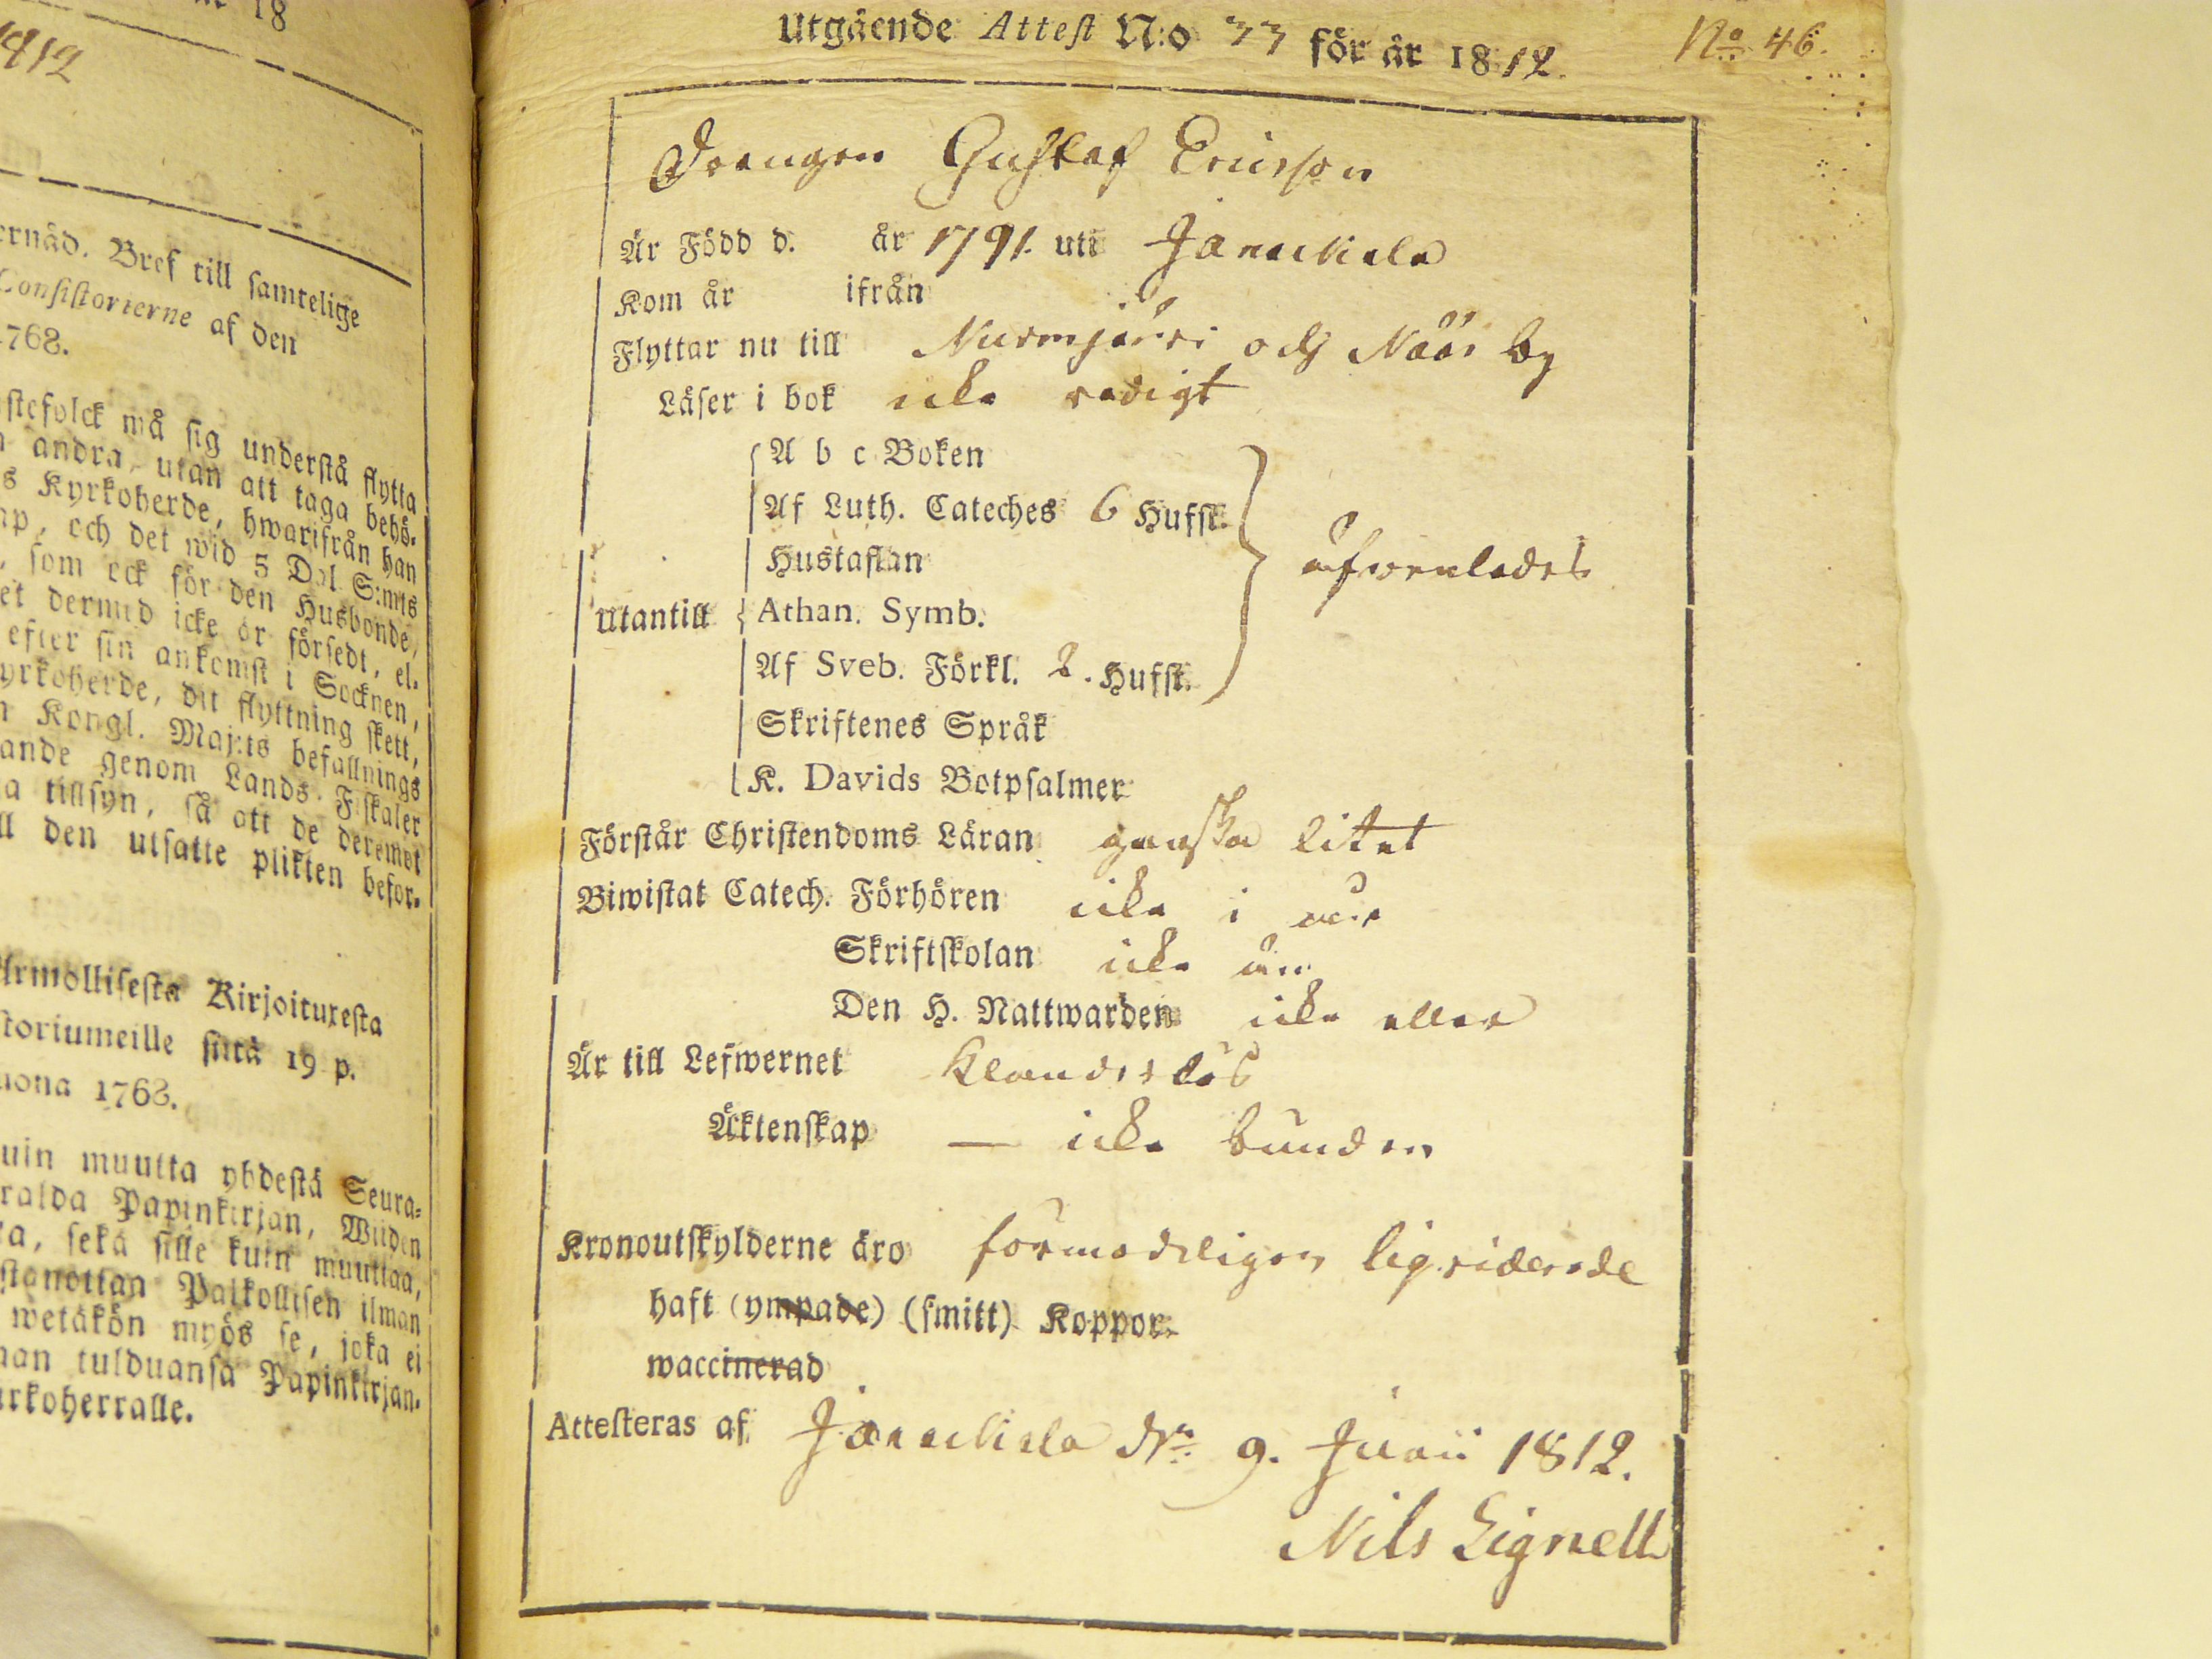 18
1812
ernåd. Bref till samtelige
Consistorierne af den
1768.
stefolck må sig understå flytta
andra, utan att taga behö-
s Kyrkoherde, hwarifrån han
np, och det wid 5 Dal. S:mts
som ock för den Husbonde,
et dermed icke är försedt, el-
efter sin ankomst i Socknen,
yrkoherde, dit flyttning skett,
n Kongl. Maj:ts befallnings
ande genom Lands Fiskaler
a tillsyn, så att de deremot
ll den utsatte plikten befor-
Armollisesta Kirjoituxesta
storiumeille siitä 19 p.
uona 1768.
uin muutta yhdestä Seura-
ralda Papinkirjan, Wiiden
ra, sekä sille kuin muuttaa,
stanottan Palkollisen ilman
wetäkön myös se, joka ei
man tulduansa Papinkirjan-
irkoherralle.
Utgående Attest N:o 33 för år 1812.
No 46.
Drengen Gustaf Ericsson
Är Född d. år 1791. uti Janackala
Kom år ifrån
Flyttar nu till Nurmjärvi och Nääs by
Läser i bok icke redigt
Utantill
A b c Boken
Af Luth. Cateches 6 Hufst.
Hustaflan
Athan. Symb.
Af Sveb. Förkl. 2. Hufst.
Skriftenes Språk
K. Davids Botpsalmer
Förstår Christendoms Läran ganska litet
Biwistat Catech. Förhören icke i
Skriftskolan icke
Den H. Nattwarden icke eller
Är till Lefwernet Klanderlös
Äktenskap — icke bunden
Kronoutskylderne äro förmodeligen liqviderade
haft (ympade) (smitt) Koppor.
waccinerad
Attesteras af Janackala d. 9. Junii 1812.
Nils Lignell